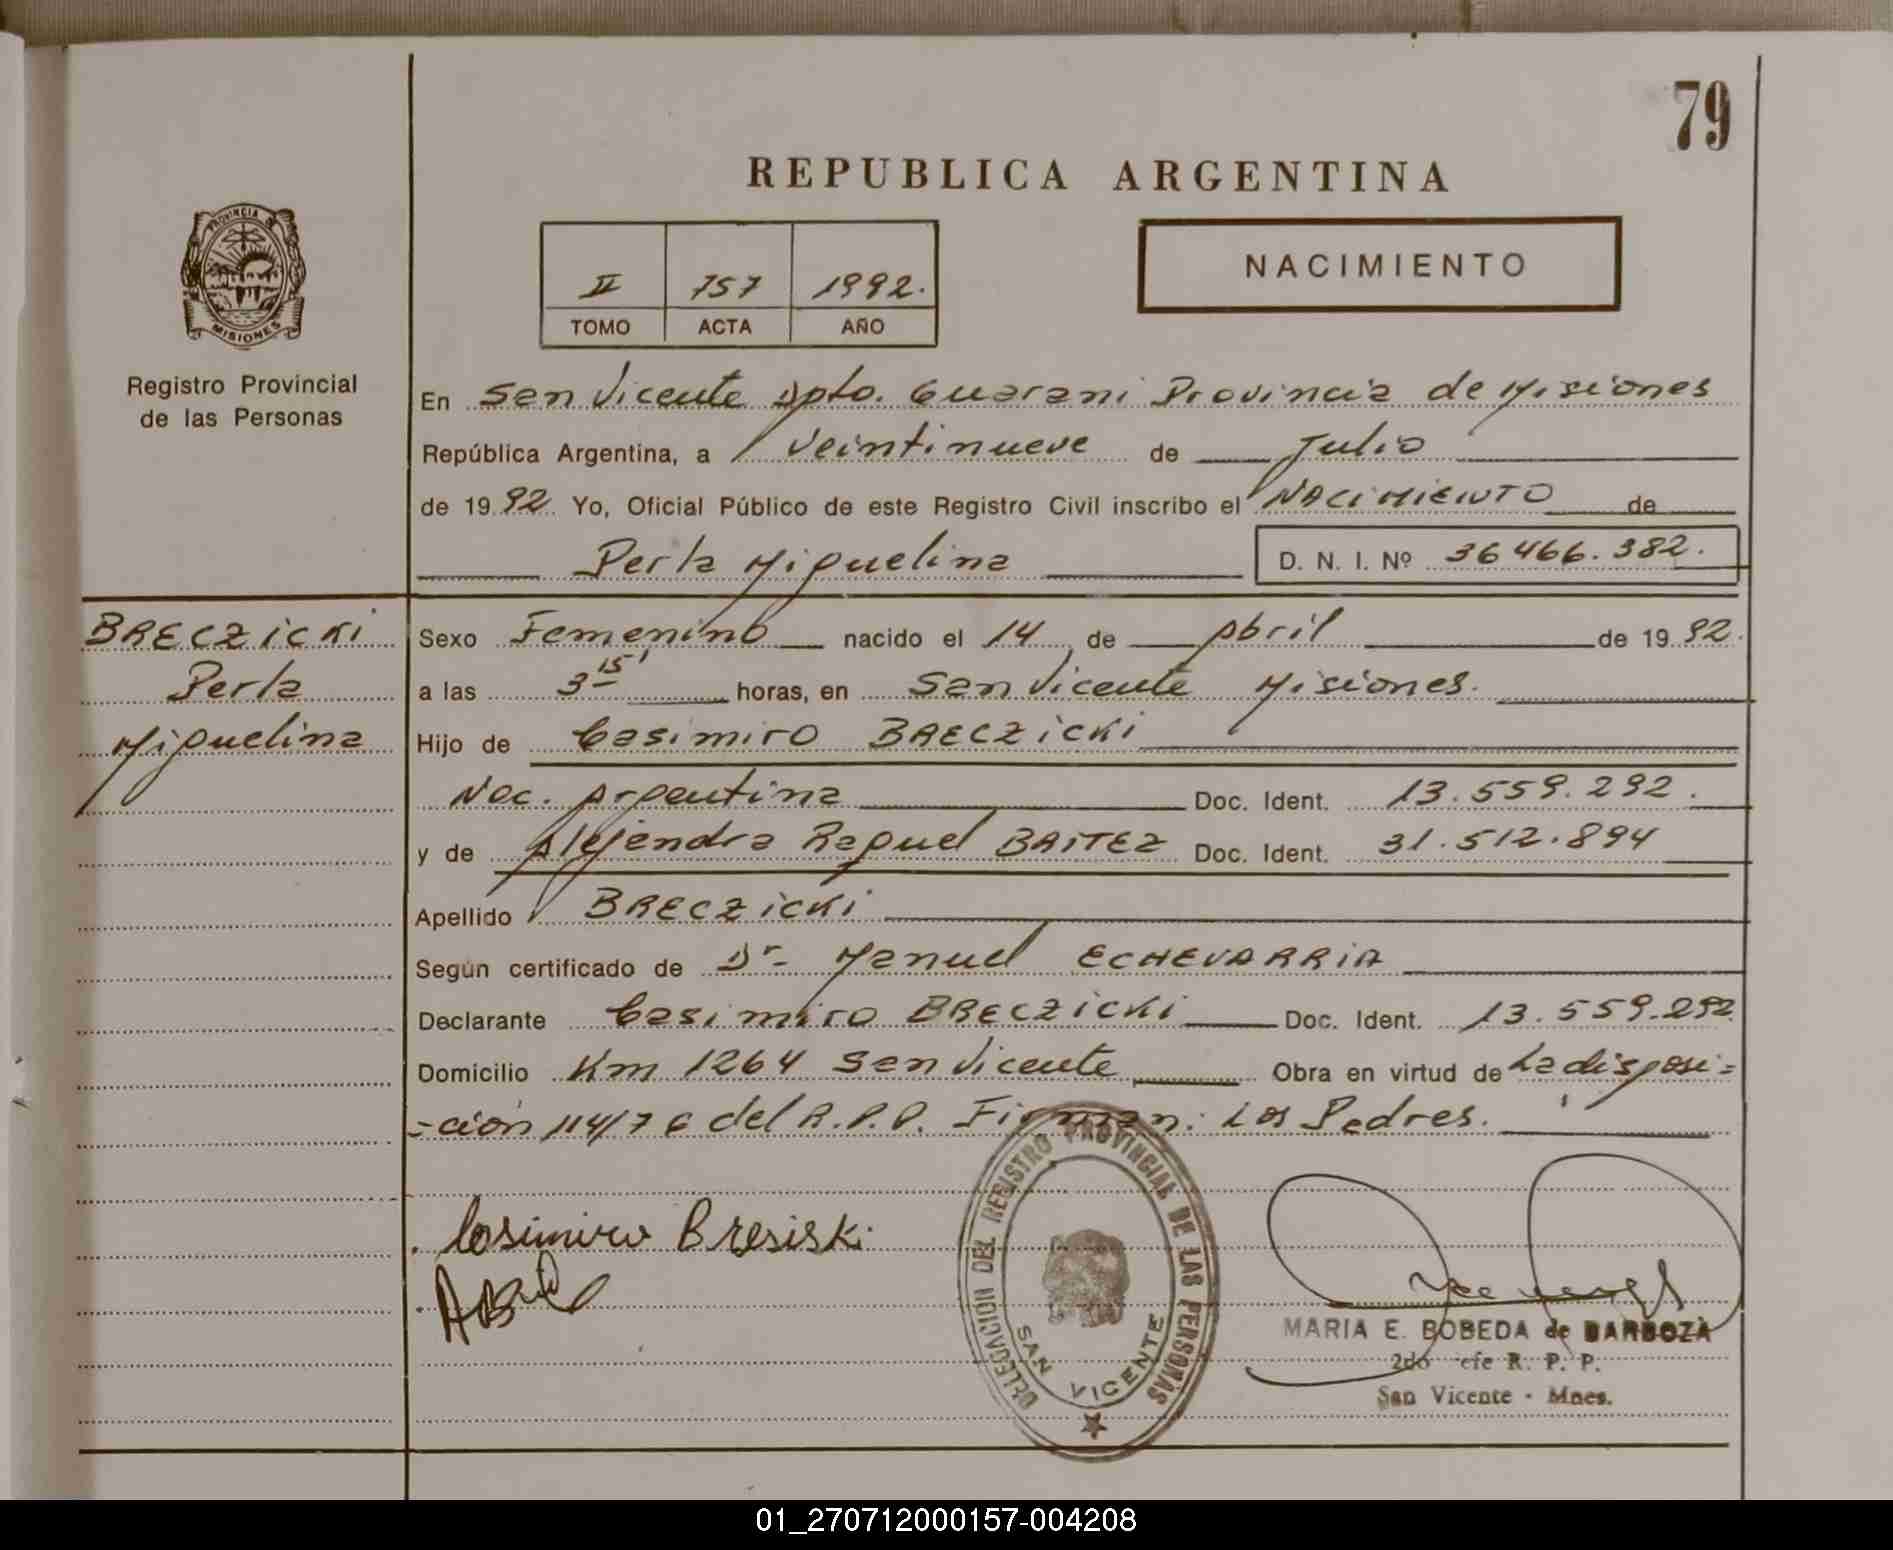 79
REPUBLICA ARGENTINA
PROVINCIA DE
MISIONES
Registro Provincial
de las Personas
II 757 1992.
TOMO ACTA AÑO
NACIMIENTO
En San Vicente Dpto. Guarani Provincia de Misiones
República Argentina, a Veintinueve de Julio
de 1992 Yo, Oficial Público de este Registro Civil inscribo el NACIMIENTO de
Perla Miguelina D. N. I. Nº 36466.382.
BRECZICKI
Perla
Miguelina
Sexo Femenino nacido el 14 de Abril de 1992.
a las 3 15' horas, en San Vicente Misiones.
Hijo de Casimiro BRECZICKI
Nac. Argentina Doc. Ident. 13.559.292.
y de Alejandra Raquel BAITEZ Doc. Ident. 31.512.894
Apellido BRECZICKI
Según certificado de Dr- Manuel ECHEVARRIA
Declarante Casimiro BRECZICKI Doc. Ident. 13.559.292
Domicilio Km 1264 San Vicente Obra en virtud de La disposi=
=ción 114/76 del R.P.P. Firman: Los Padres.
Casimiro Bresiski
DELEGACIÓN DEL REGISTRO PROVINCIAL DE LAS PERSONAS
SAN VICENTE
MARIA E. BOBEDA de BARBOZA
2do efe R. P. P.
San Vicente - Mnes.
01_270712000157-004208